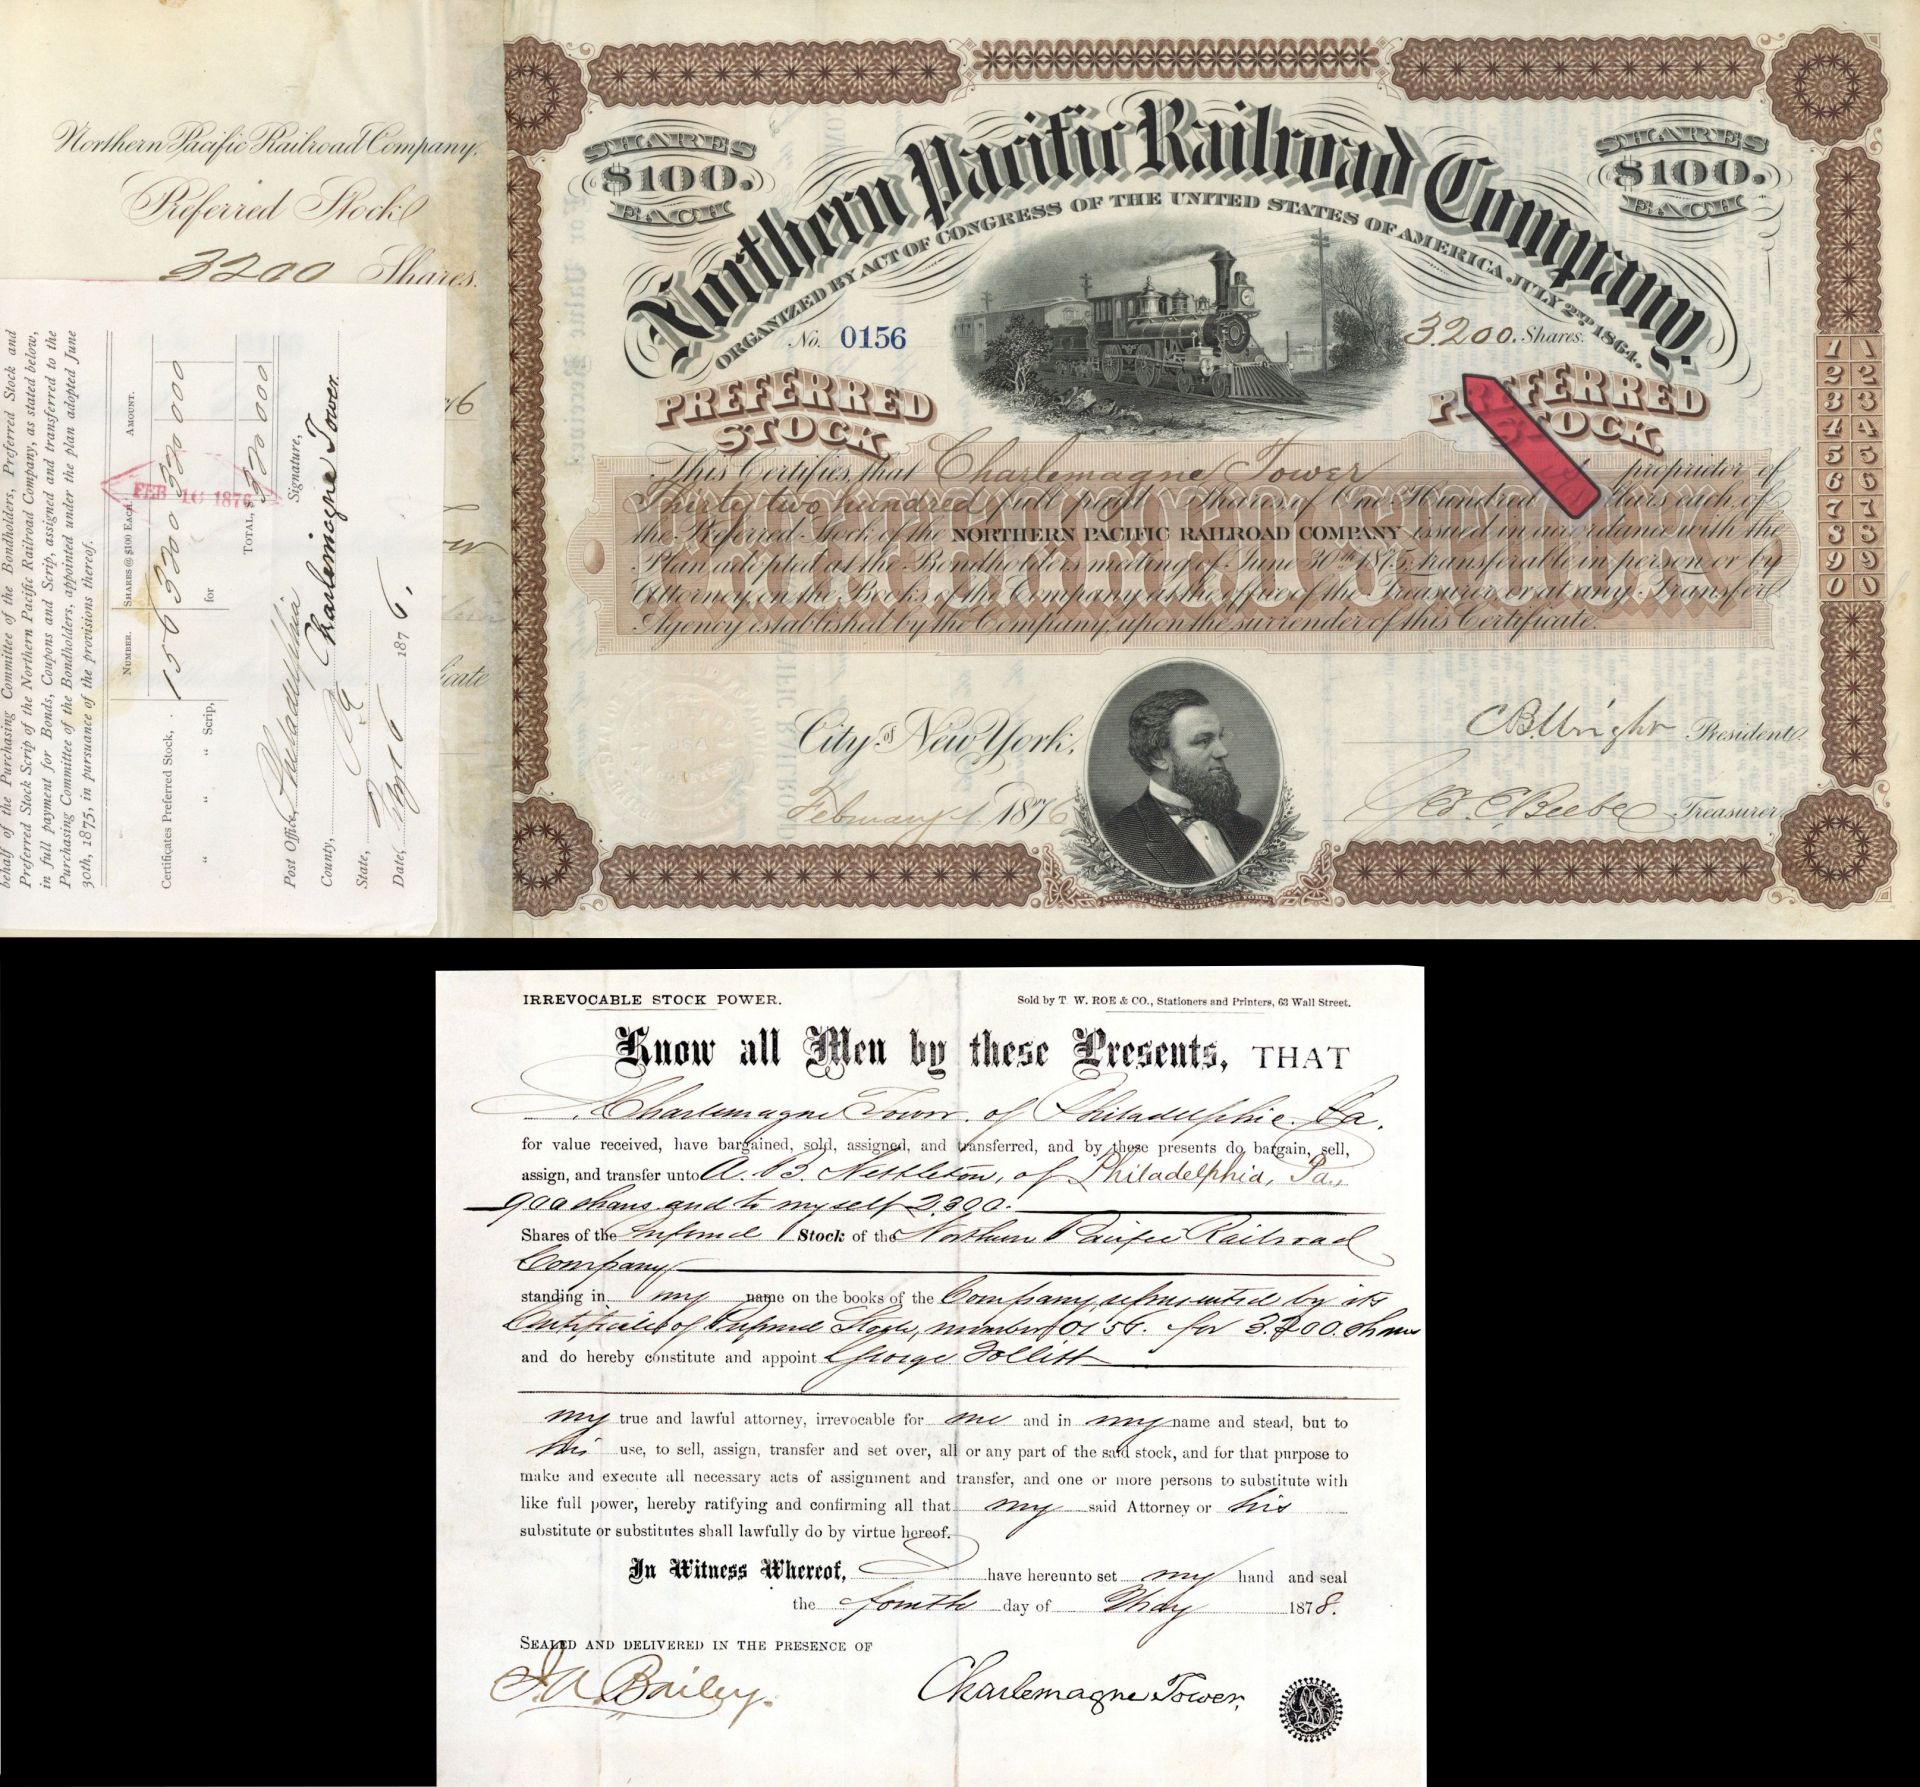 Northern Pacific Railroad Company.
Preferred Stock
3200 Shares.
behalf of the Purchasing Committee of the Bondholders, Preferred Stock and
Preferred Stock Scrip of the Northern Pacific Railroad Company, as stated below,
in full payment for Bonds, Coupons and Scrip, assigned and transferred to the
Purchasing Committee of the Bondholders, appointed under the plan adopted June
30th, 1875, in pursuance of the provisions thereof.
NUMBER. SHARES @ $100 EACH. AMOUNT.
Certificates Preferred Stock, 156 3200 320 000
" " Scrip, for
TOTAL, $ 320 000
FEB 16 1876
Signature,
Post Office, Philadelphia
County, Charlemagne Tower.
State, Pa
Date, 16 1876.
SHARES $100. EACH
SHARES $100. EACH
Northern Pacific Railroad Company.
ORGANIZED BY ACT OF CONGRESS OF THE UNITED STATES OF AMERICA, JULY 2ND 1864.
No. 0156
3200. Shares.
PREFERRED STOCK
PREFERRED STOCK
This Certifies, that Charlemagne Tower proprietor of
Thirty two hundred full paid Shares of One Hundred each, of
the Preferred Stock of the NORTHERN PACIFIC RAILROAD COMPANY issued in accordance with the
Plan adopted at the Bondholders meeting of June 30th 1875, transferable in person or by
Attorney, on the Books of the Company at the office of the Treasurer or at any Transfer
Agency established by the Company, upon the surrender of this Certificate.
1 1
2 2
3 3
4 4
5 5
6 6
7 7
8 8
9 9
0 0
City of New York,
February 1 1876
C B Wright President.
Geo. E. Beebe Treasurer.
IRREVOCABLE STOCK POWER.
Sold by T. W. ROE & CO., Stationers and Printers, 63 Wall Street.
Know all Men by these Presents, THAT
I, Charlemagne Tower, of Philadelphia Pa.
for value received, have bargained, sold, assigned, and transferred, and by these presents do bargain, sell,
assign, and transfer unto A. B. Nettleton, of Philadelphia, Pa.,
900 shares and to myself 2300.
Shares of the Preferred Stock of the Northern Pacific Railroad
Company
standing in my name on the books of the Company, represented by its
Certificate of Preferred Stock, number 0156. for 3.200 shares
and do hereby constitute and appoint George Follitt
my true and lawful attorney, irrevocable for me and in my name and stead, but to
his use, to sell, assign, transfer and set over, all or any part of the said stock, and for that purpose to
make and execute all necessary acts of assignment and transfer, and one or more persons to substitute with
like full power, hereby ratifying and confirming all that my said Attorney or his
substitute or substitutes shall lawfully do by virtue hereof.
In Witness Whereof, I have hereunto set my hand and seal
the fourth day of May 1878.
SEALED AND DELIVERED IN THE PRESENCE OF
J. A. Bailey.
Charlemagne Tower,
LS